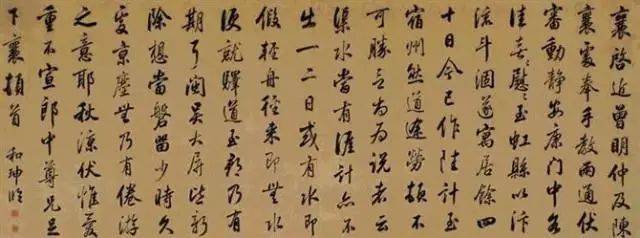 襄啓近曾明仲及陳
襄處奉手教兩通伏
審動靜安康門中各
佳喜〻慰〻至虹縣以汴
流斗涸遂寓居餘四
十日今已作陸計至
宿州然道途勞頓不
可勝言為為說者云
渠水當有涯計亦不
出一二日或有水即
假輕舟徑來即無水
便就驛道至都乃有
期耳閩吳大屏皆新
除想當磐留少時久
處京塵無乃有倦游
之意耶秋涼伏惟愛
重不宣郎中尊兄足
下襄頓首 和珅臨